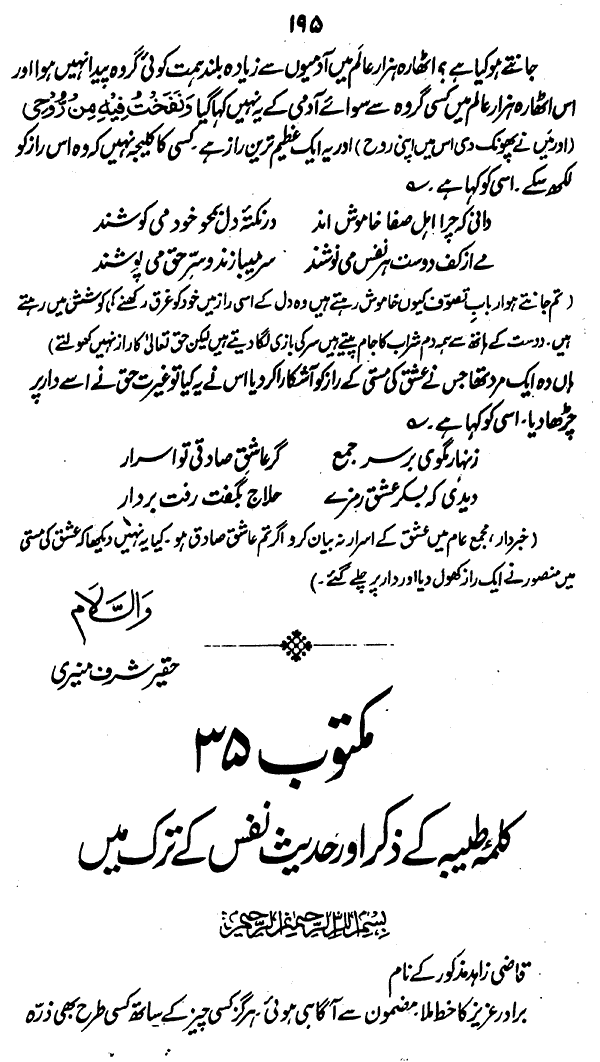 ۱۹۵
جانتے ہو کیا ہے؟ اٹھارہ ہزار عالم میں آدمیوں سے زیادہ بلند ہمت کوئی گروہ پیدا نہیں ہوا اور
اس اٹھارہ ہزار عالم میں کسی گروہ سے سوائے آدمی کے یہ نہیں کہا گیا وَنَفَخْتُ فِيْهِ مِنْ رُّوْحِي
(اور میں نے پھونک دی اس میں اپنی روح) اور یہ ایک عظیم ترین راز ہے۔ کسی کا کلیجہ نہیں کہ وہ اس راز کو
لکھ سکے۔ اسی کو کہا ہے۔
دانی کہ چرا اہل صفا خاموش اند در نکتۂ دل بمحو خود می کوشند
مے از کف دوست ہر نفس می نوشند سر میبازند و سرّ حق می پوشند
(تم جانتے ہو ارباب تصوّف کیوں خاموش رہتے ہیں وہ دل کے اسی راز میں خود کو غرق رکھنے کی کوشش میں رہتے
ہیں۔ دوست کے ہاتھ سے ہر دم شراب کا جام پیتے ہیں سر کی بازی لگا دیتے ہیں لیکن حق تعالیٰ کا راز نہیں کھولتے)
ہاں وہ ایک مرد تھا جس نے عشق کی مستی کے راز کو آشکارا کر دیا اس نے یہ کیا تو غیرت حق نے اسے دار پر
چڑھا دیا۔ اسی کو کہا ہے۔
زنہار مگوی بر سر جمع گر عاشق صادقی تو اسرار
دیدی کہ بسکر عشق رمزے حلاج بگفت رفت بردار
(خبردار، مجمع عام میں عشق کے اسرار نہ بیان کرو اگر تم عاشق صادق ہو۔ کیا یہ نہیں دیکھا کہ عشق کی مستی
میں منصور نے ایک راز کھول دیا اور دار پر چلے گئے۔)
والسّلام
حقیر شرف منیری
مکتوب ۳۵
کلمۂ طیبہ کے ذکر اور حدیث نفس کے ترک میں
بِسْمِ اللهِ الرَّحْمٰنِ الرَّحِيْمِ
قاضی زاہد مذکور کے نام
برادر عزیز کا خط ملا۔ مضمون سے آگاہی ہوئی۔ ہرگز کسی چیز کے ساتھ کسی طرح بھی ذرّہ